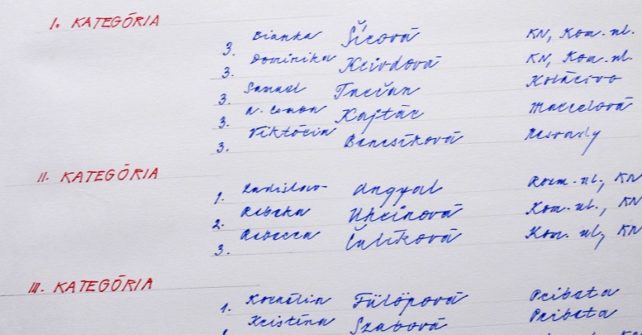 I. KATEGÓRIA
3. Bianka Šícová KN, Kom. ul.
3. Dominika Kvírdová KN, Kom. ul.
3. Samuel Tučan Kolárovo
3. Kajtár Marcelová
3. Viktória Bencsíková Nesvady
II. KATEGÓRIA
1. Ladislav Angyal Rozm. ul., KN
2. Rebeka Uhrinová Kom. ul., KN
3. Rebecca Čulíková Kom. ul., KN
III. KATEGÓRIA
1. Kornélia Fülöpová Pribeta
Kristína Szabová Pribeta